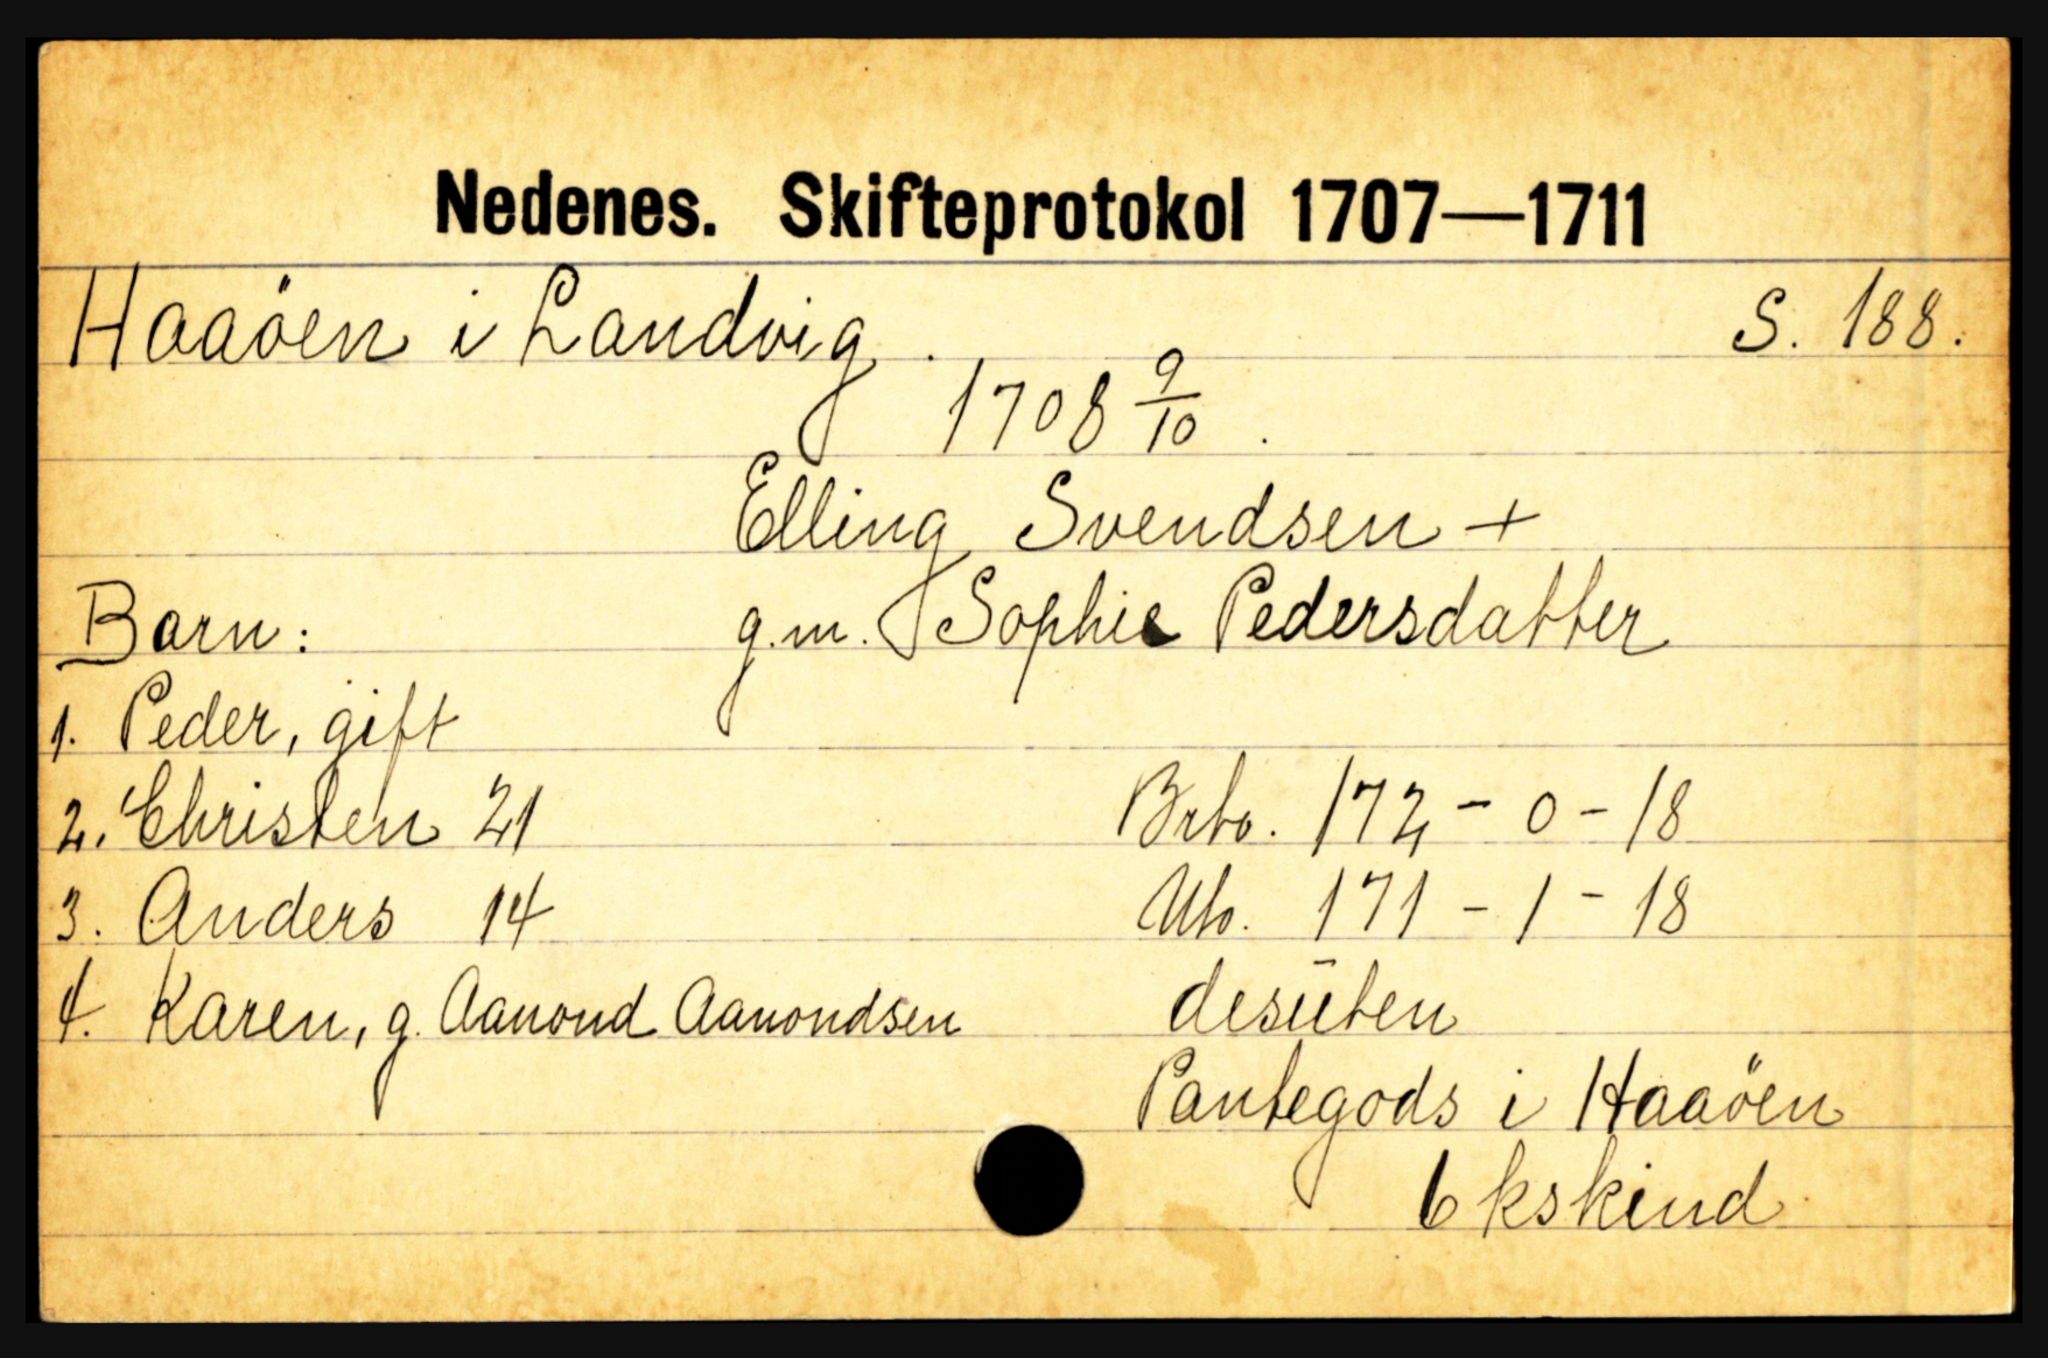 Nedenes. Skifteprotokol 1707—1711
Haaöen i Landvig. S. 188.
1708 9/10.
Elling Svendsen +
Barn: g.m. Sophie Pedersdatter
1. Peder, gift
2. Christen 21 Brto. 172 - 0 - 18
3. Anders 14 Nto. 171 - 1 - 18
4. Karen, g. Aanond Aanondsen desüten
Pantegods i Haaöen
6 kskind